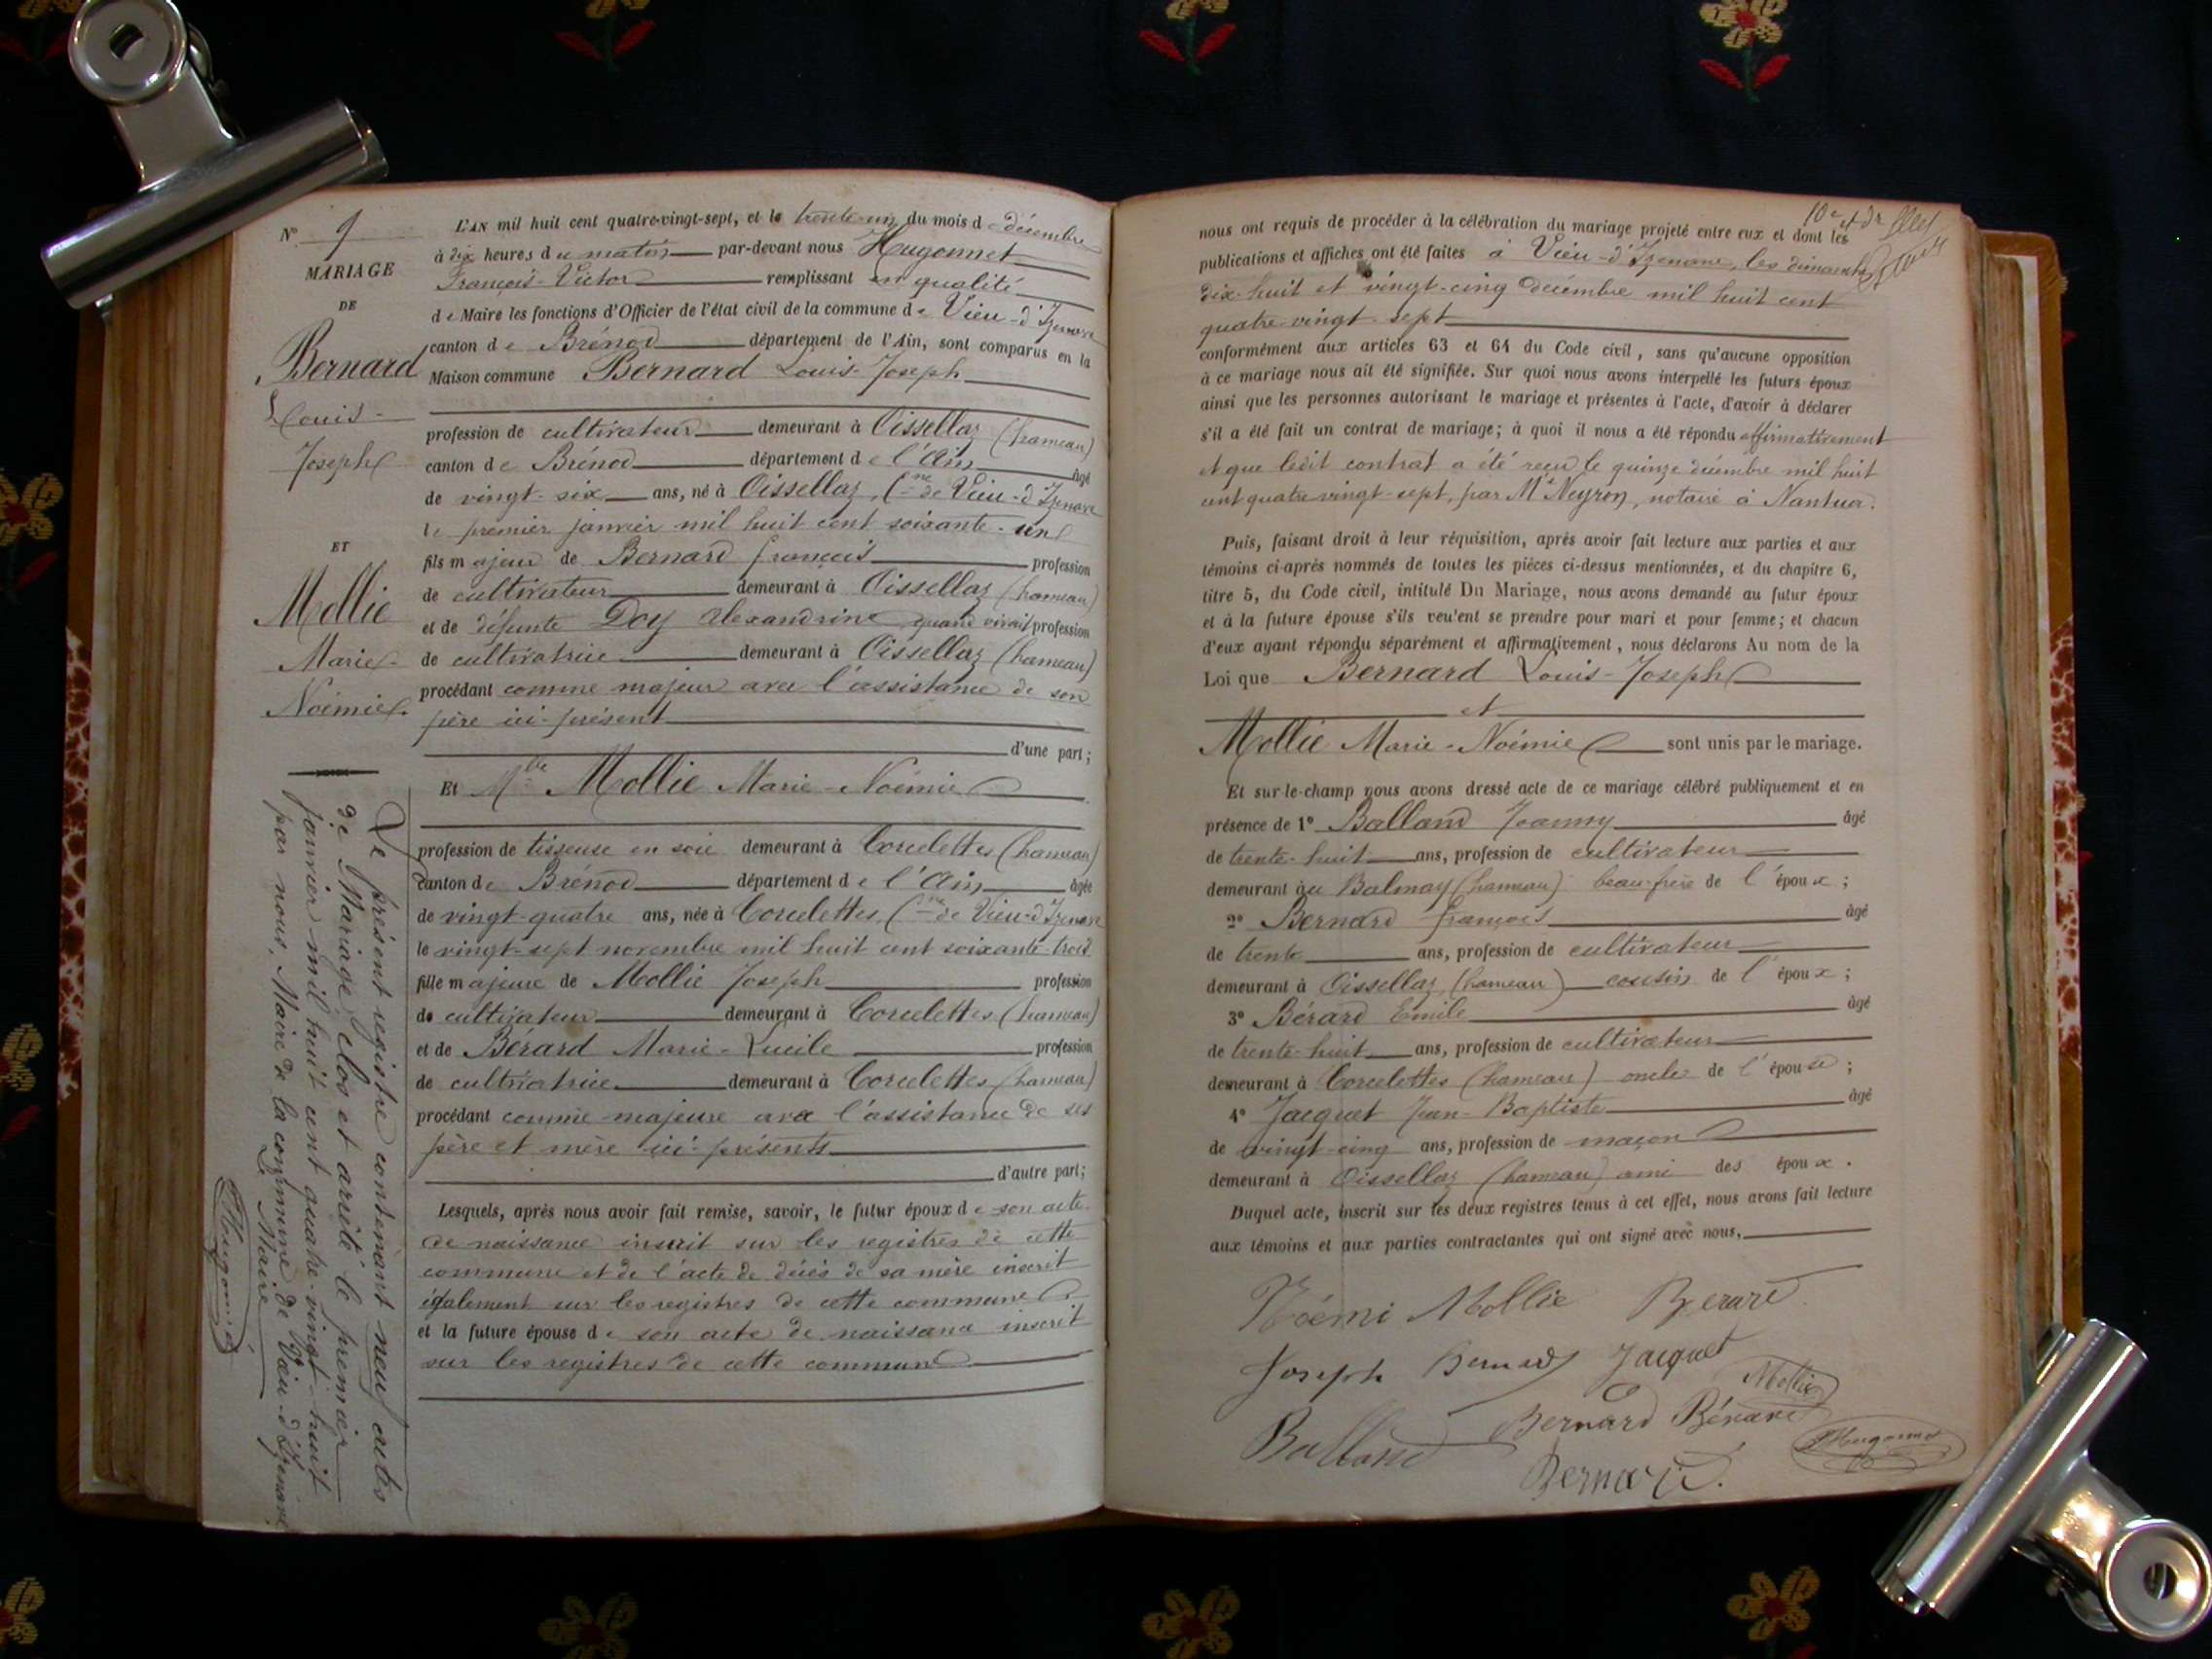 N° 9
MARIAGE
DE
Bernard
Louis-
Joseph
ET
Mollie
Marie-
Noémie.
L'AN mil huit cent quatre-vingt-sept, et le trente-un du mois de décembre
à dix heures du matin par-devant nous Hugonnet
François-Victor remplissant en qualité
de Maire les fonctions d'Officier de l'état civil de la commune de Vieu-d'Izenave
canton de Brénod département de l'Ain, sont comparus en la
Maison commune Bernard Louis-Joseph
profession de cultivateur demeurant à Oissellaz (hameau)
canton de Brénod département de l'Ain âgé
de vingt-six ans, né à Oissellaz, Cne de Vieu-d'Izenave
le premier janvier mil huit cent soixante-un
fils majeur de Bernard François profession
de cultivateur demeurant à Oissellaz (hameau)
et de défunte Doy Alexandrine quand vivait profession
de cultivatrice demeurant à Oissellaz (hameau)
procédant comme majeur avec l'assistance de son
père ici-présent
d'une part;
Et Mlle Mollie Marie-Noémie
profession de tisseuse en soie demeurant à Corcelettes (hameau)
canton de Brénod département de l'Ain âgée
de vingt-quatre ans, née à Corcelettes, Cne de Vieu-d'Izenave
le vingt-sept novembre mil huit cent soixante-trois
fille majeure de Mollie Joseph profession
de cultivateur demeurant à Corcelettes (hameau)
et de Bérard Marie-Lucile profession
de cultivatrice demeurant à Corcelettes (hameau)
procédant comme majeure avec l'assistance de ses
père et mère ici-présents
d'autre part;
Lesquels, après nous avoir fait remise, savoir, le futur époux de son acte
de naissance inscrit sur les registres de cette
commune et de l'acte de décès de sa mère inscrit
également sur les registres de cette commune
et la future épouse de son acte de naissance inscrit
sur les registres de cette commune
Le présent registre contenant neuf actes
de Mariage, clos et arrêté le premier
janvier mil huit cent quatre-vingt-huit
par nous, Maire de la commune de Vieu-d'Izenave.
Le Maire
Hugonnet
10e et dr
nous ont requis de procéder à la célébration du mariage projeté entre eux et dont les
publications et affiches ont été faites à Vieu-d'Izenave, les dimanches
dix-huit et vingt-cinq décembre mil huit cent
quatre-vingt-sept
conformément aux articles 63 et 64 du Code civil, sans qu'aucune opposition
à ce mariage nous ait été signifiée. Sur quoi nous avons interpellé les futurs époux
ainsi que les personnes autorisant le mariage et présentes à l'acte, d'avoir à déclarer
s'il a été fait un contrat de mariage; à quoi il nous a été répondu affirmativement
et que ledit contrat a été reçu le quinze décembre mil huit
cent quatre vingt-sept, par Me Neyron, notaire à Nantua.
Puis, faisant droit à leur réquisition, après avoir fait lecture aux parties et aux
témoins ci-après nommés de toutes les pièces ci-dessus mentionnées, et du chapitre 6,
titre 5, du Code civil, intitulé Du Mariage, nous avons demandé au futur époux
et à la future épouse s'ils veulent se prendre pour mari et pour femme; et chacun
d'eux ayant répondu séparément et affirmativement, nous déclarons Au nom de la
Loi que Bernard Louis-Joseph
et
Mollie Marie-Noémie sont unis par le mariage.
Et sur-le-champ nous avons dressé acte de ce mariage célébré publiquement et en
présence de 1° Balland Joanny âgé
de trente-huit ans, profession de cultivateur
demeurant au Balmay (hameau) beau-frère de l'époux;
2° Bernard François âgé
de trente ans, profession de cultivateur
demeurant à Oissellaz (hameau) cousin de l'époux;
3° Bérard Emile âgé
de trente-huit ans, profession de cultivateur
demeurant à Corcelettes (hameau) oncle de l'épouse;
4° Jacquet Jean-Baptiste âgé
de vingt-cinq ans, profession de maçon
demeurant à Oissellaz (hameau) ami des époux.
Duquel acte, inscrit sur les deux registres tenus à cet effet, nous avons fait lecture
aux témoins et aux parties contractantes qui ont signé avec nous,
Noémi Mollie Berard
Joseph Bernard Jacquet
Mollie
Balland Bernard Bérard
Hugonnet
Bernard.